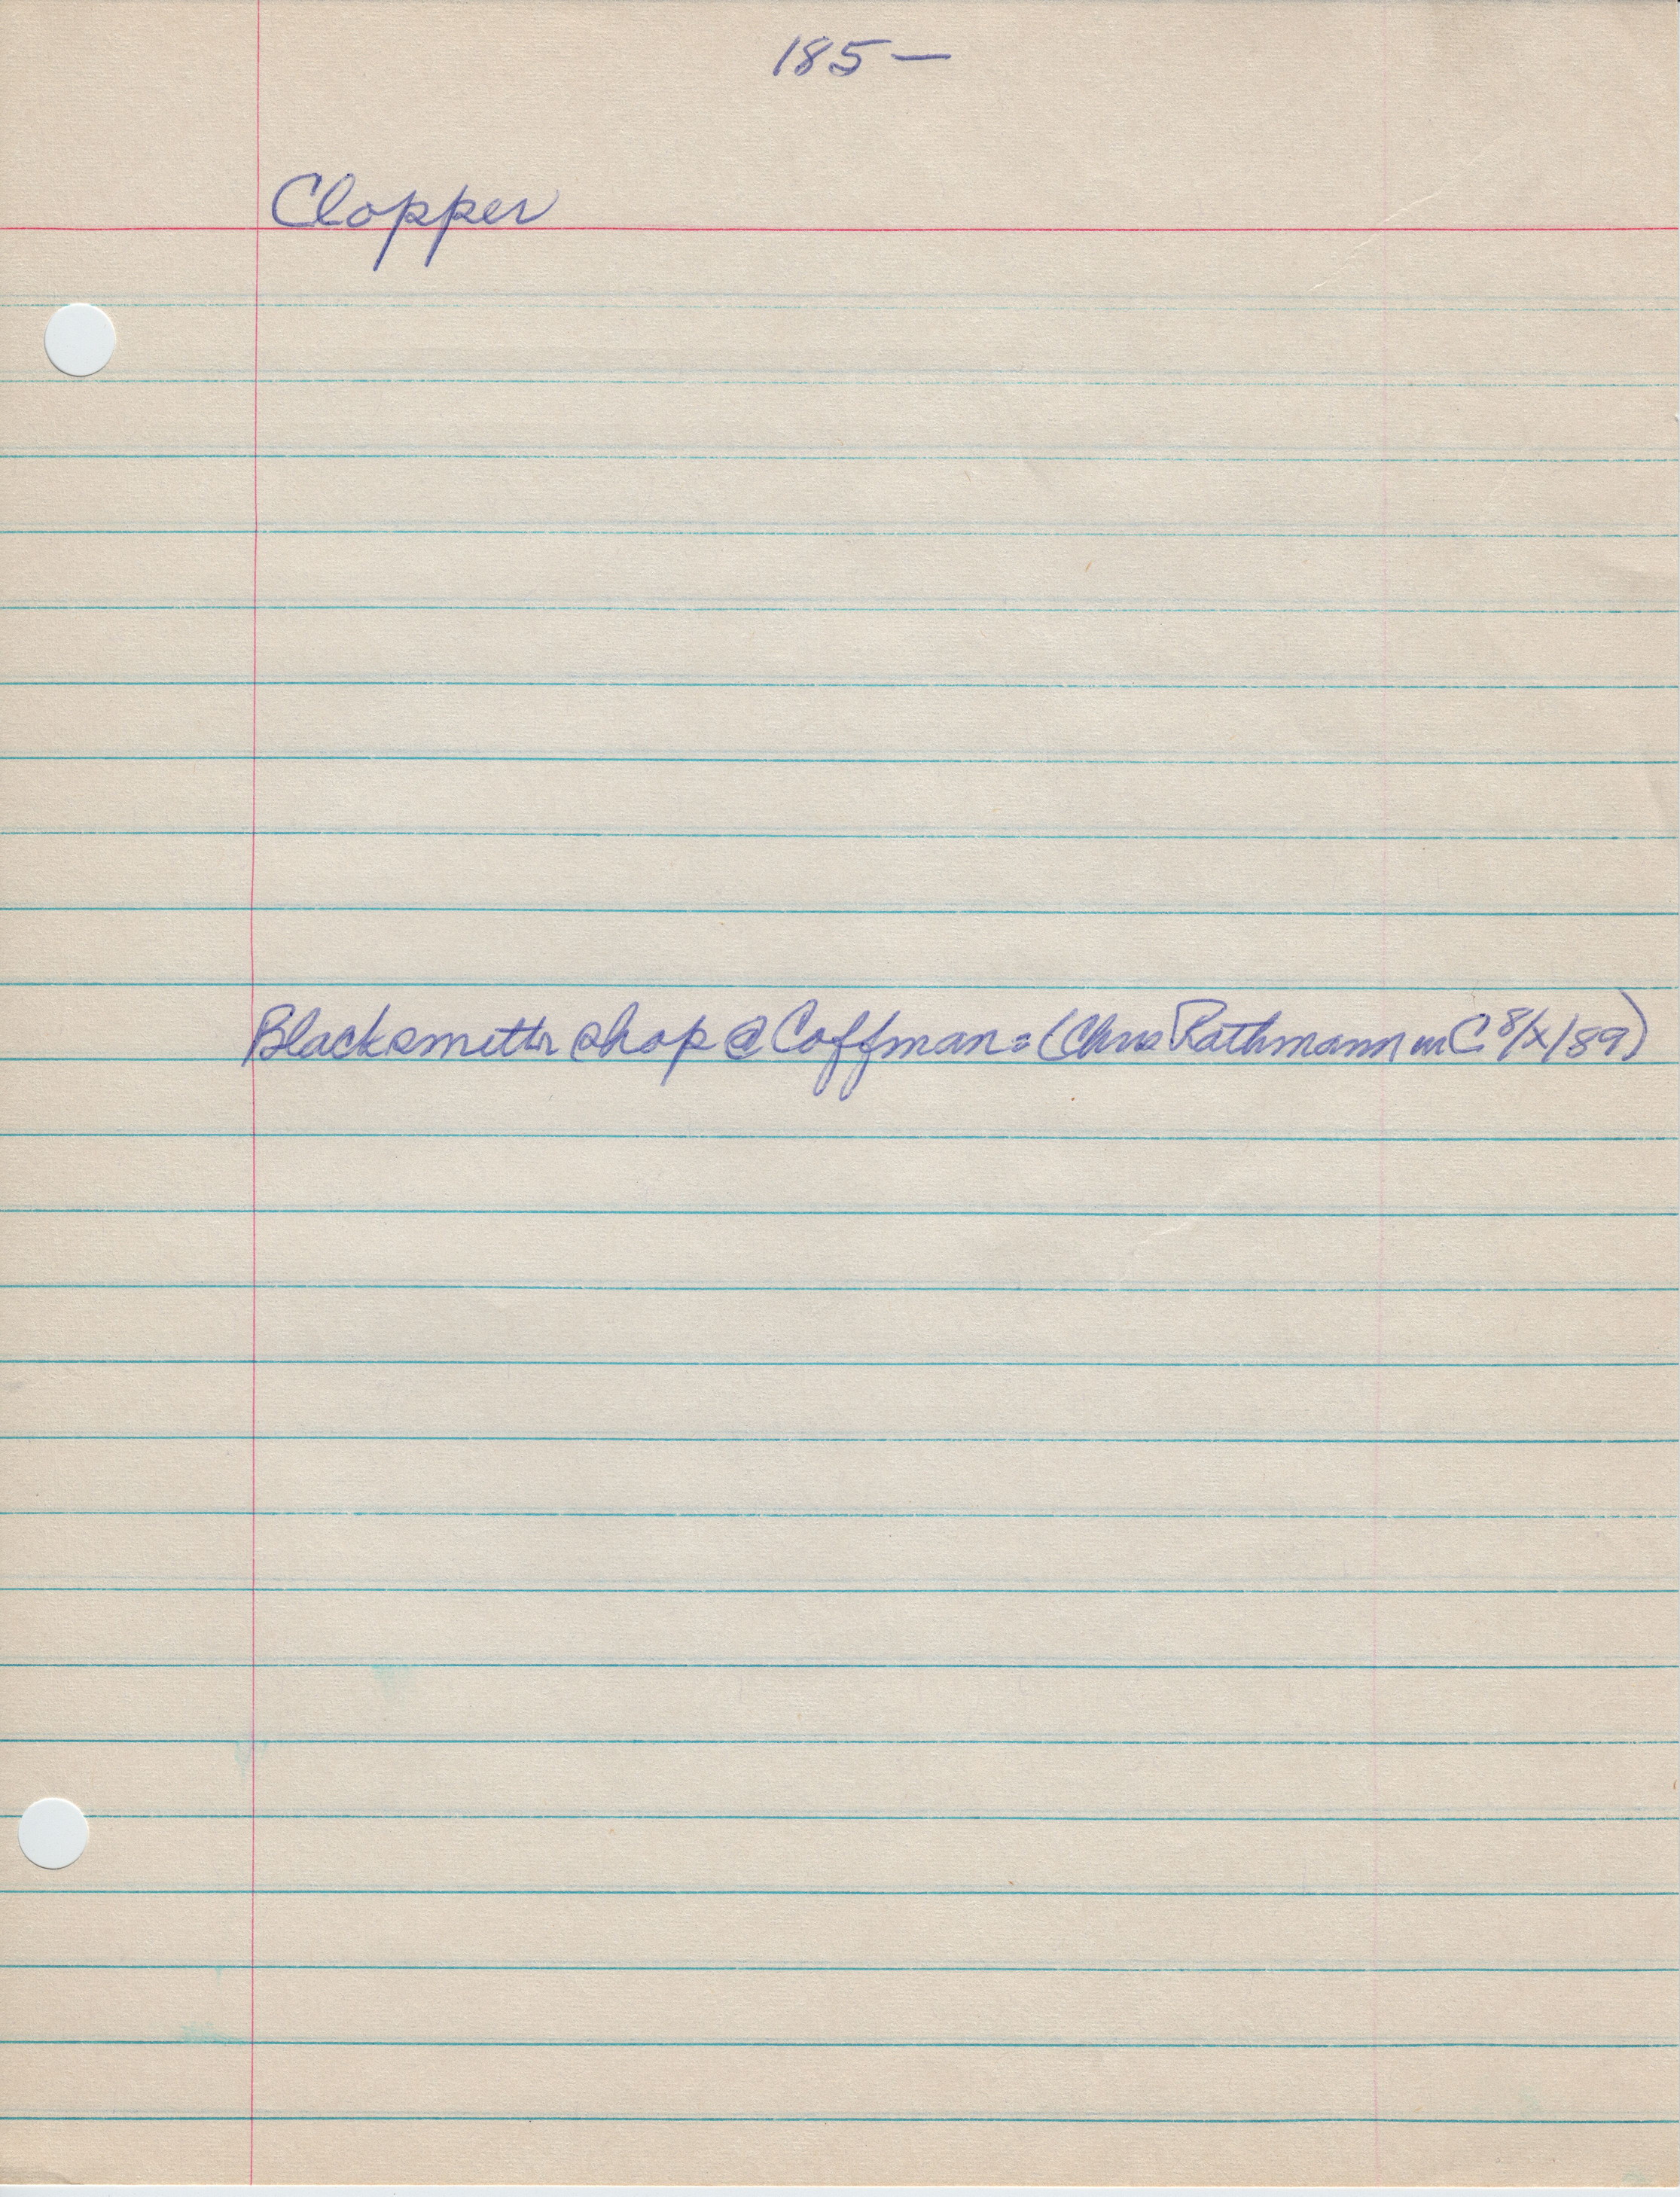 185—
Clopper
Blacksmith shop @ Coffman = (Chris Rathmann in C 8/X/89)